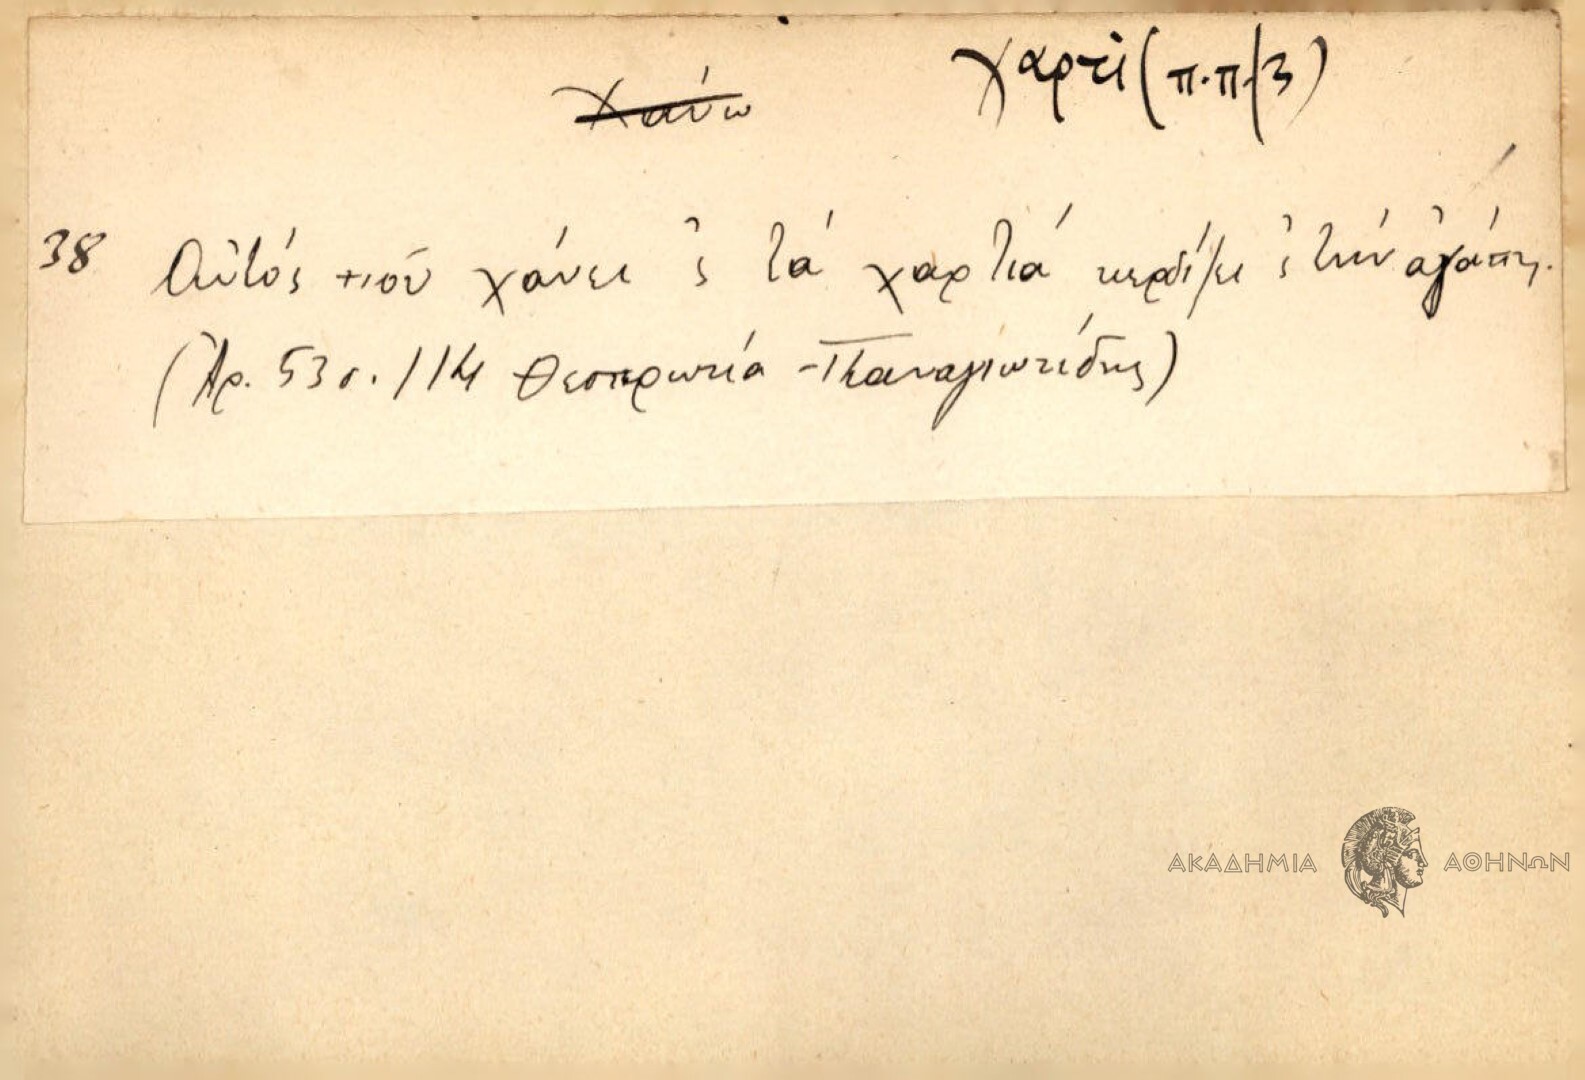 χάνω χαρτὶ (π.π. 3)
38 Αὐτός ποῦ χάνει 'ς τά χαρτιά κερδίζει 'ς τήν ἀγάπη.
(Ἀρ. 53 σ. 114 Θεσπρωτία - Παναγιωτίδης)
ΑΚΑΔΗΜΙΑ ΑΘΗΝΩΝ